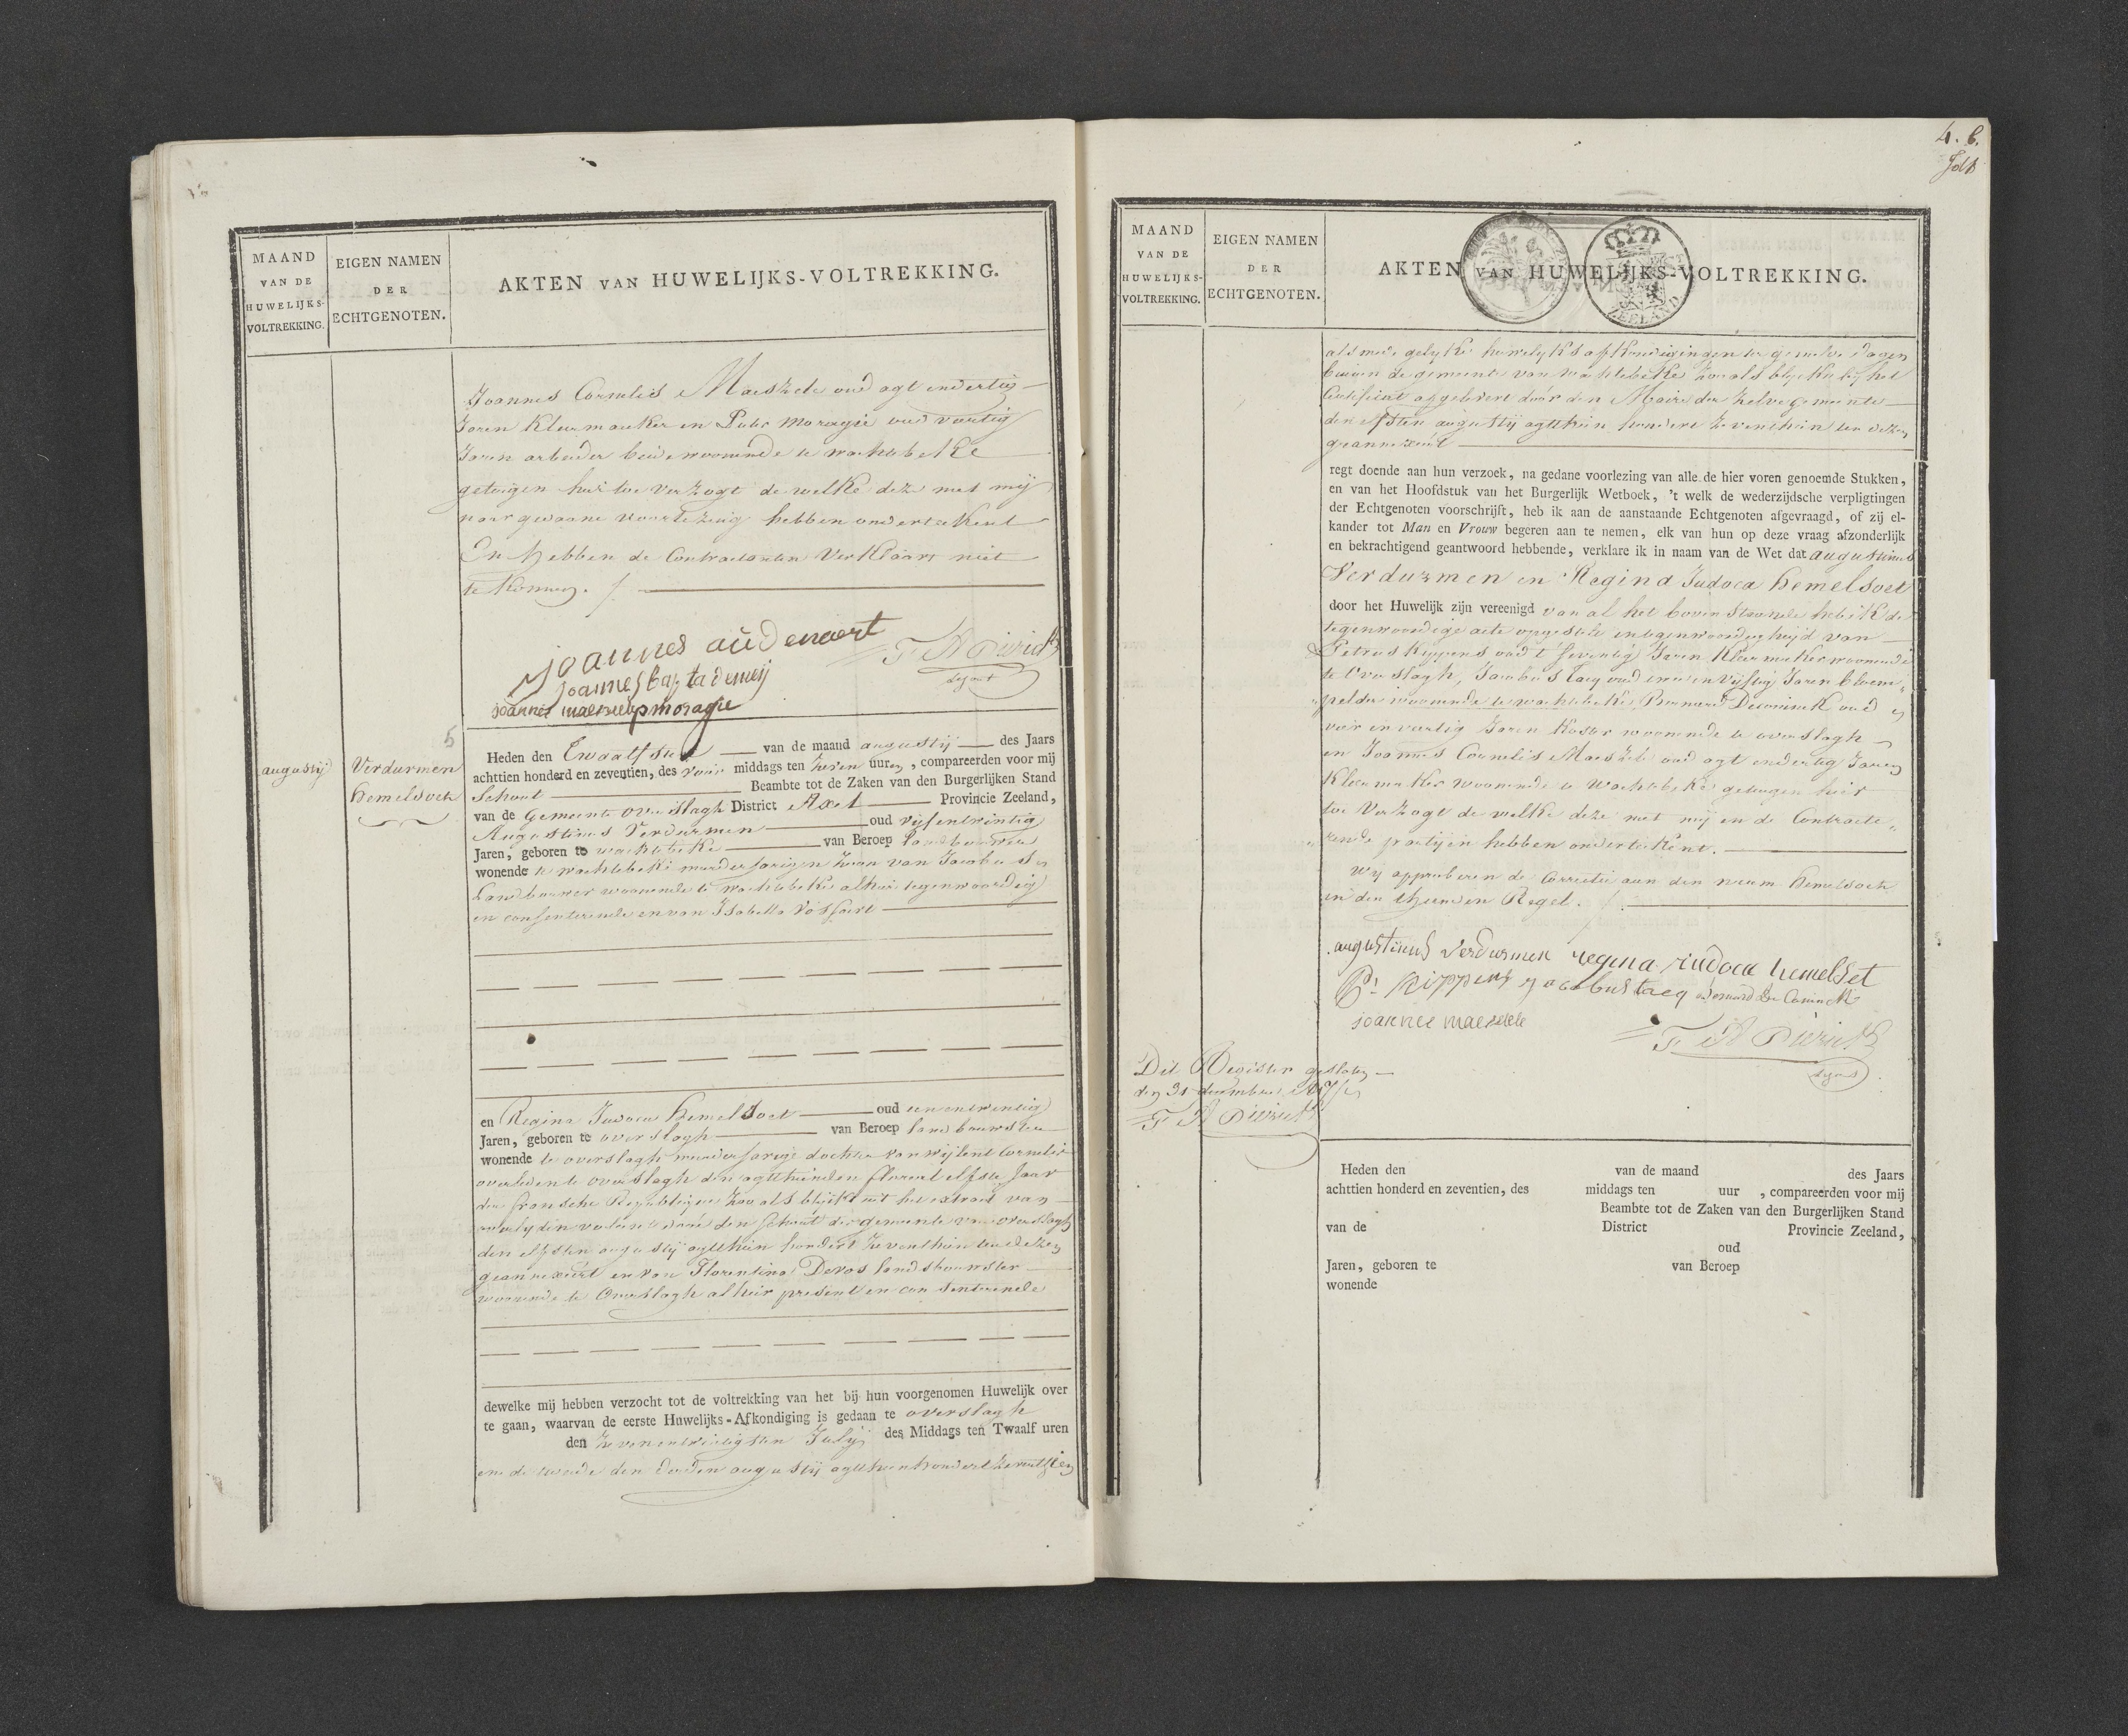 MAAND
VAN DE
HUWELIJKS-
VOLTREKKING.
EIGEN NAMEN
DER
ECHTGENOTEN.
AKTEN VAN HUWELIJKS-VOLTREKKING.
Joannes Cornelis Maeszele oud agt en dertig
Jaren Kleermaeker en Pieter Moragie oud veertig
Jaren arbeider beide woonende te wachtebeke
getuigen hier toe verzogt de welke deze met mij
naar gedaane voorlezing hebben onderteekent
En hebben de Contractanten Verklaart niet
te konnen. /.
joannes audenaert
joannes bapta demeij
F A Pierict
schout
joannes maeszele p moragie
5
augustij
Verdurmen
Hemelsoet
Heden den Twaalfsten van de maand augustij des Jaars
achttien honderd en zeventien, des voor middags ten zeven uuren, compareerden voor mij
Schout Beambte tot de Zaken van den Burgerlijken Stand
van de Gemeente overslagh District Axel Provincie Zeeland,
Augustinus Verdurmen oud vijfentwintig
Jaren, geboren te wachtebeke van Beroep landbouwer
wonende te wachtebeke meerderjarigen zoon van Jacobus
Landbouwer woonende te wachtebeke alhier tegenwoordig
en consenterende en van Isabella Vosfaert
en Regina Judoca Hemelsoet oud eenentwintig
Jaren, geboren te overslagh van Beroep landbouwster
wonende te overslagh meerderjarige dochter van wijlent Cornelis
overleden te overslagh den agtthienden floreal elfste Jaar
der fransche Republique zoo als blijkt uit het extract van
overlyden door den schout der gemeente van overslagh
den elfsten augustij agtthien hondert zeventhien ten dezen
geannexeert en van Florentina Devos landbouwster
woonende te Overslagh alhier present en consenterende
dewelke mij hebben verzocht tot de voltrekking van het bij hun voorgenomen Huwelijk over
te gaan, waarvan de eerste Huwelijks-Afkondiging is gedaan te overslagh
den zevenentwintigsten Julij des Middags ten Twaalf uren
en de tweede den derden augustij agtthien hondert zeventhien
4. 6.
MAAND
VAN DE
HUWELIJKS-
VOLTREKKING.
EIGEN NAMEN
DER
ECHTGENOTEN.
AKTEN VAN HUWELIJKS-VOLTREKKING.
ZEELAND
als mede gelyke huwelyks afkondigingen ter gemelde dagen
binnen de gemeente van wachtebeke zoo als blijkt bij het
Certificaet afgelevert door den Maire der zelve gemeente
den elfsten augustij agtthien hondert zeventhien ten dezen
geannexeert
regt doende aan hun verzoek, na gedane voorlezing van alle de hier voren genoemde Stukken,
en van het Hoofdstuk van het Burgerlijk Wetboek, 't welk de wederzijdsche verpligtingen
der Echtgenoten voorschrijft, heb ik aan de aanstaande Echtgenoten afgevraagd, of zij el-
kander tot Man en Vrouw begeren aan te nemen, elk van hun op deze vraag afzonderlijk
en bekrachtigend geantwoord hebbende, verklare ik in naam van de Wet dat augustinus
Verdurmen en Regina Judoca Hemelsoet
door het Huwelijk zijn vereenigd van al het boven staande heb ik de
tegenwoordige acte opgestelt in tegenwoordigheijd van
Petrus Kippens oud t'seventig Jaren Kleermaker woonende
te Overslagh, Jacobus Tacq oud een en vijftig Jaren bloem-
pelder woonende te wachtebeke, Bernard Deconinck oud
vier en veertig Jaren Koster woonende te overslagh
en Joannes Cornelis Maeszele oud agt en dertig Jaren
Kleermaker woonende te Wachtebeke getuigen hier
toe verzogt de welke deze met mij en de Contracte-
rende partijen hebben onderteekent.
Wy approberen de Correctie aan den naam Hemelsoet
in den thienden Regel. /.
augustinus verdurmen regina judoca hemelset
Pr Kippens jacobus tacq Bernard De Coninck
joannes maeszele
F A Pierict
schout
Dit Register gesloten
den 31 december 1817
F A Pierict
Heden den van de maand des Jaars
achttien honderd en zeventien, des middags ten uur , compareerden voor mij
Beambte tot de Zaken van den Burgerlijken Stand
van de District Provincie Zeeland,
oud
Jaren, geboren te van Beroep
wonende